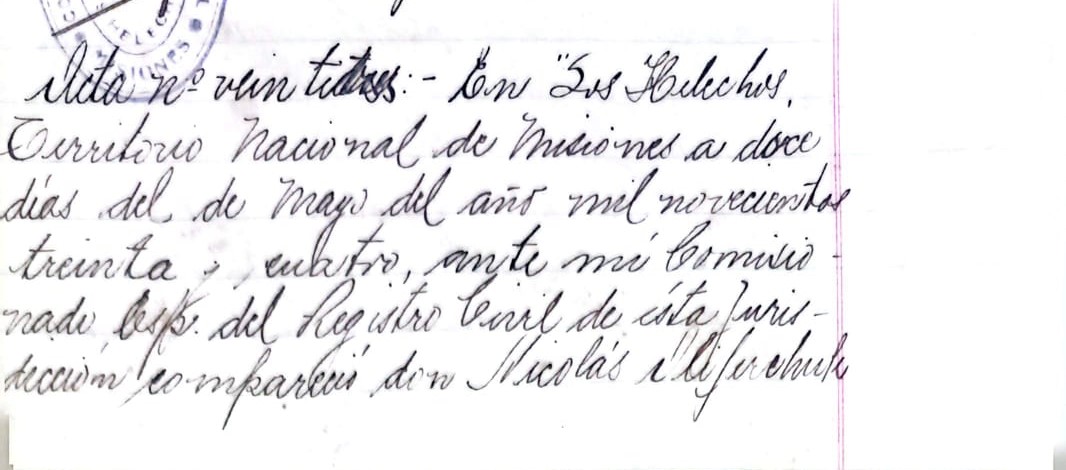 HELECH
MISIONES
Acta nº veintitres:- En "Los Helechos,
Territorio Nacional de Misiones a doce
días del de Mayo del año mil novecientos
treinta y cuatro, ante mí Comisio-
nado Esp. del Registro Civil de ésta Juris-
dicción compareció don Nicolás